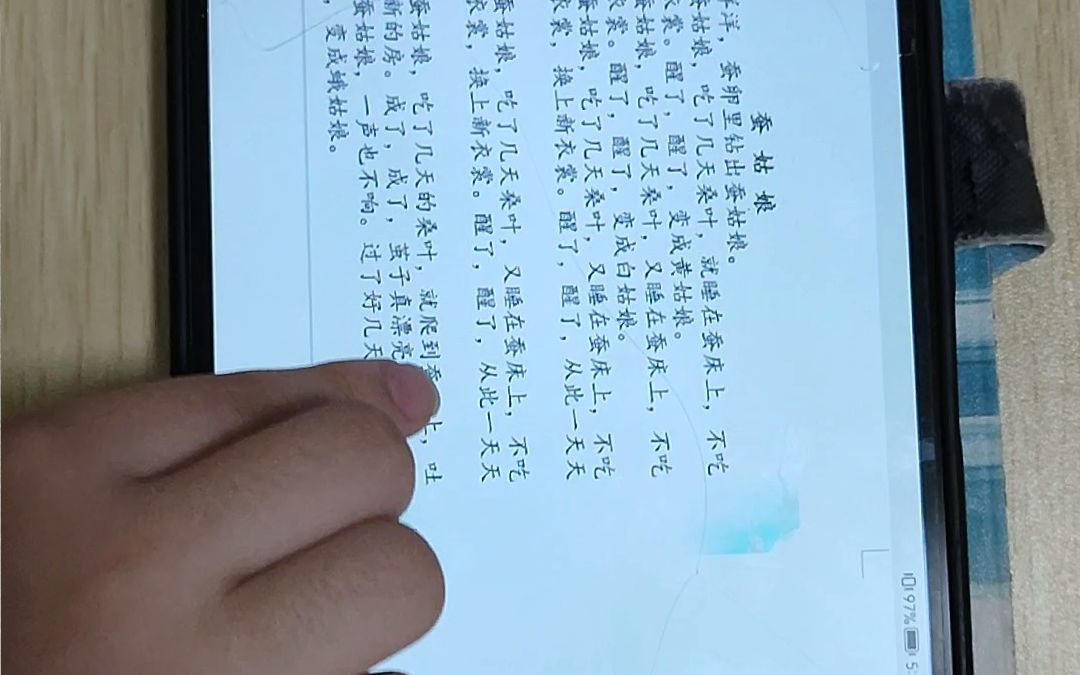 97% 5:
蚕姑娘
洋,蚕卵里钻出蚕姑娘。
蚕姑娘,吃了几天桑叶,就睡在蚕床上,不吃
衣裳。醒了,醒了,变成黄姑娘。
蚕姑娘,吃了几天桑叶,又睡在蚕床上,不吃
衣裳。醒了,醒了,变成白姑娘。
蚕姑娘,吃了几天桑叶,又睡在蚕床上,不吃
衣裳,换上新衣裳。醒了,醒了,从此一天天
蚕姑娘,吃了几天桑叶,又睡在蚕床上,不吃
衣裳,换上新衣裳。醒了,醒了,从此一天天
蚕姑娘,吃了几天的桑叶,就爬到蚕上,吐
新的房。成了,成了,茧子真漂亮
蚕姑娘,一声也不响。过了好几天
,变成蛾姑娘。